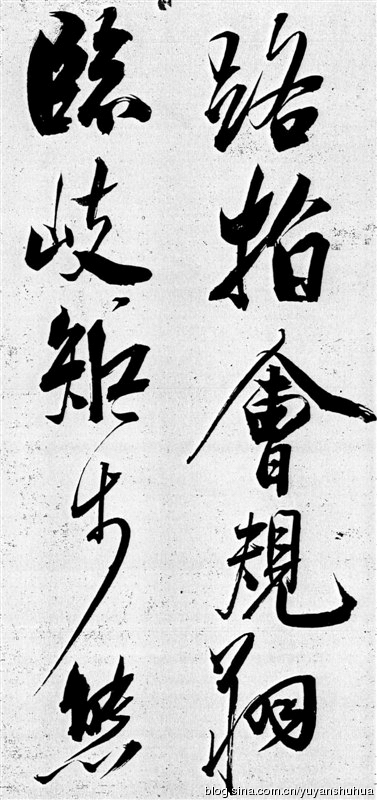 路指會規翔
臨岐矩步
blog.sina.com.cn/yuyanshuhua